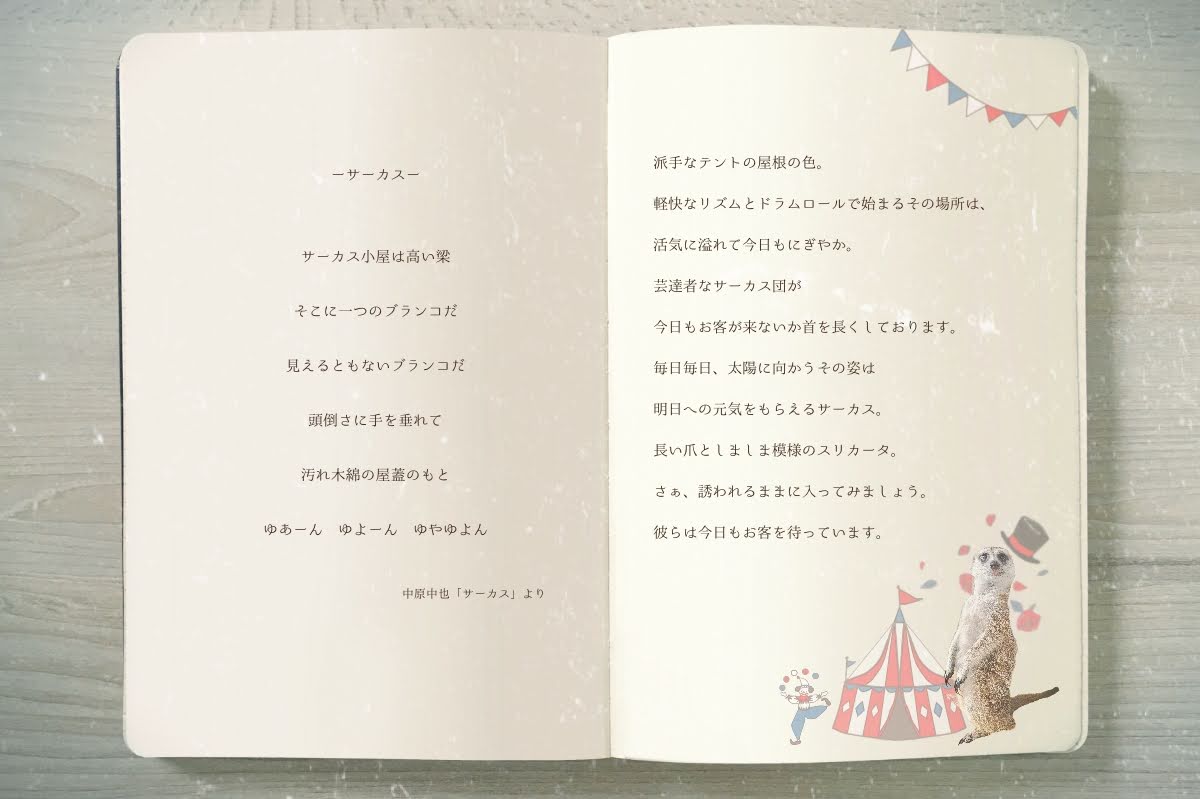 ーサーカスー
サーカス小屋は高い梁
そこに一つのブランコだ
見えるともないブランコだ
頭倒さに手を垂れて
汚れ木綿の屋蓋のもと
ゆあーん　ゆよーん　ゆやゆよん
中原中也「サーカス」より
派手なテントの屋根の色。
軽快なリズムとドラムロールで始まるその場所は、
活気に溢れて今日もにぎやか。
芸達者なサーカス団が
今日もお客が来ないか首を長くしております。
毎日毎日、太陽に向かうその姿は
明日への元気をもらえるサーカス。
長い爪としましま模様のスリカータ。
さぁ、誘われるままに入ってみましょう。
彼らは今日もお客を待っています。